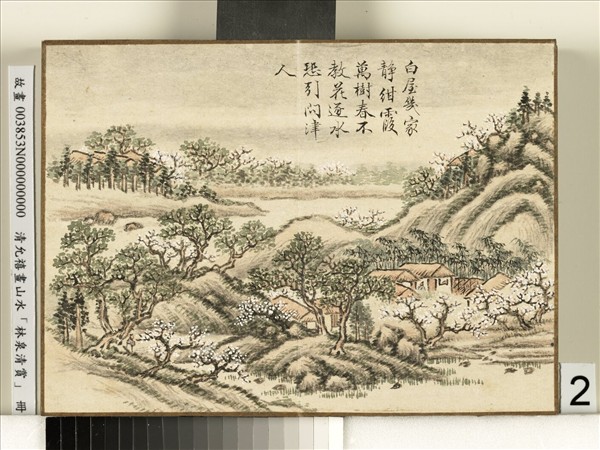 白屋幾家
静紺霞
萬樹春不
教花逐水
恐引問津
人
故畫 003853N000000000 清允禧畫山水「林泉清賞」 冊
2